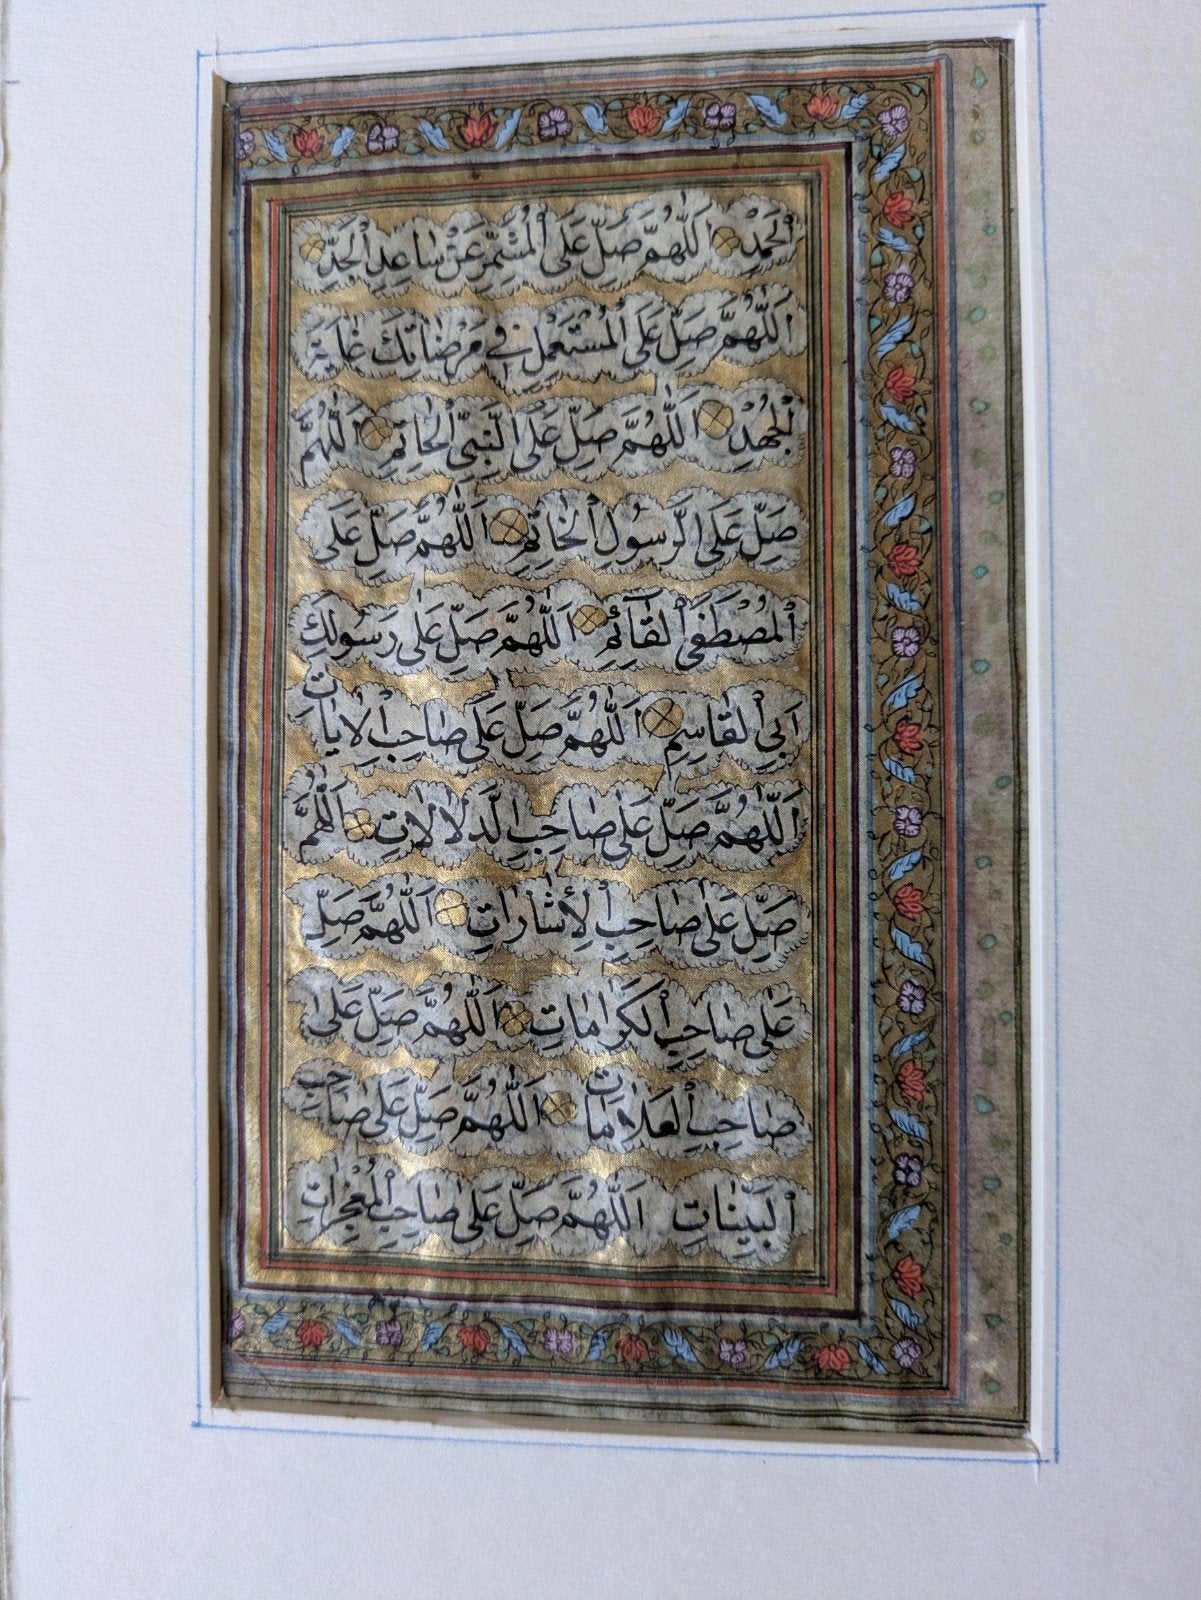 ٱلْحَمْدِ اَللّٰهُمَّ صَلِّ عَلَى ٱلْمُشَمِّرِ عَنْ سَاعِدِ ٱلْجَدِّ
اَللّٰهُمَّ صَلِّ عَلَى ٱلْمُسْتَعْمِلِ فِي مَرْضَاتِكَ غَايَةَ
ٱلْجُهْدِ اَللّٰهُمَّ صَلِّ عَلَى ٱلنَّبِىِّ ٱلْخَاتِمِ اَللّٰهُمَّ
صَلِّ عَلَى ٱلرَّسُولِ ٱلْخَاتِمِ اَللّٰهُمَّ صَلِّ عَلَى
ٱلْمُصْطَفَى ٱلْقَآئِمِ اَللّٰهُمَّ صَلِّ عَلٰى رَسُولِكَ
اَبِي ٱلْقَاسِمِ اَللّٰهُمَّ صَلِّ عَلٰى صَاحِبِ ٱلْاٰيَاتِ
اَللّٰهُمَّ صَلِّ عَلٰى صَاحِبِ ٱلدَّلَالَاتِ اَللّٰهُمَّ
صَلِّ عَلٰى صَاحِبِ ٱلْأِشَارَاتِ اَللّٰهُمَّ صَلِّ
عَلٰى صَاحِبِ ٱلْكَرَامَاتِ اَللّٰهُمَّ صَلِّ عَلٰى
صَاحِبِ ٱلْعَلَامَاتِ اَللّٰهُمَّ صَلِّ عَلٰى صَاحِبِ
ٱلْبَيِّنَاتِ اَللّٰهُمَّ صَلِّ عَلٰى صَاحِبِ ٱلْمُعْجِزَاتِ